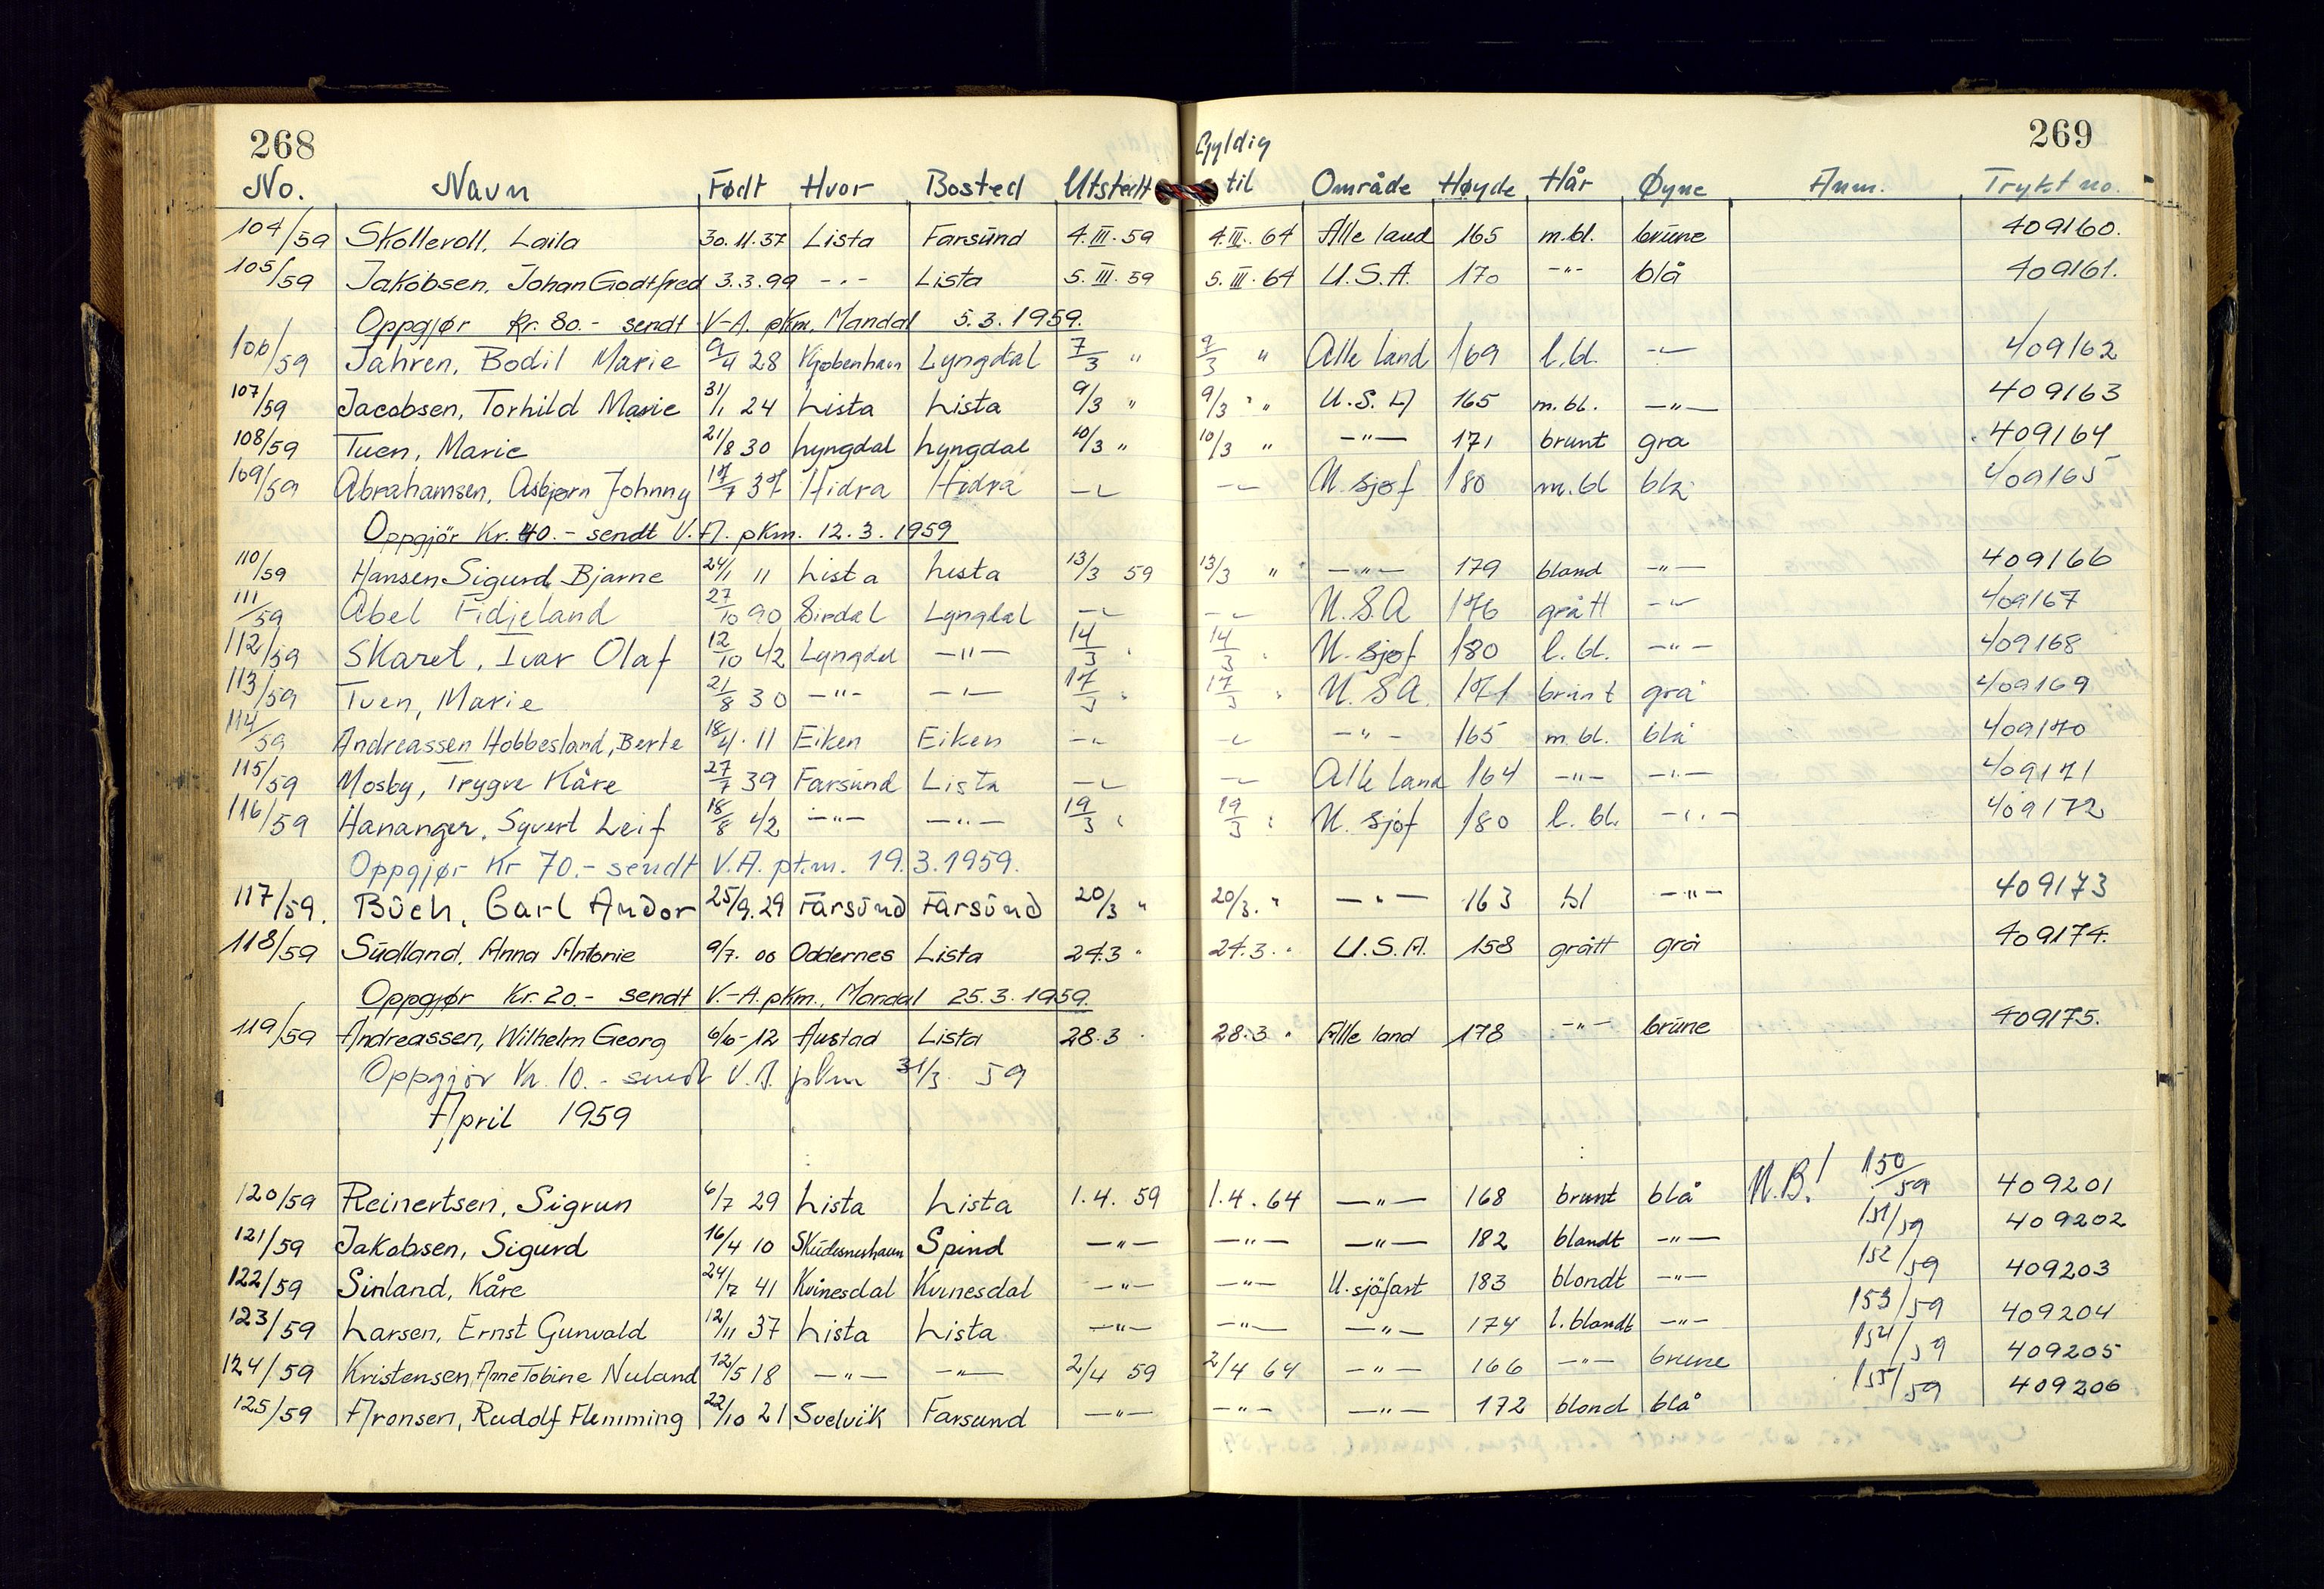 268
269
No. Navn Født Hvor Bosted Utstedt Gyldig til Område Høyde Hår Øyne Anm. Trykt no.
104/59 Skollevoll, Laila 30.11.37 Lista Farsund 4.III.59 4.III.64 Alle land 165 m.bl. brune 409160.
105/59 Jakobsen, Johan Godtfred 3.3.99 -"- Lista 5.III.59 5.III.64 U.S.A. 170 -"- blå 409161.
Oppgjør kr. 80.- sendt V-A. pkm. Mandal 5.3.1959.
106/59 Jahren, Bodil Marie 9/4 28 Kjøbenhavn Lyngdal 7/3 " 9/3 " Alle land 169 l.bl. -"- 409162
107/59 Jacobsen, Torhild Marie 31/1 24 Lista Lista 9/3 " 9/3 " U.S.A 165 m.bl. -"- 409163
108/59 Tuen, Marie 21/8 30 Lyngdal Lyngdal 10/3 " 10/3 " -"- 171 brunt grå 409164
109/59 Abrahamsen, Asbjørn Johnny 17/7 37 Hidra Hidra -"- -"- U. sjøf 180 m.bl blå 409165
Oppgjör Kr. 40.- sendt V.A. pkm. 12.3.1959
110/59 Hansen Sigurd Bjarne 24/1 11 Lista Lista 13/3 59 13/3 " -"- 179 bland -"- 409166
111/59 Abel Fidjeland 27/10 90 Sirdal Lyngdal -"- -"- U.S.A 176 grått -"- 409167
112/59 Skaret, Ivar Olaf 12/10 42 Lyngdal -"- 14/3 " 14/3 " U. sjøf 180 l.bl. -"- 409168
113/59 Tuen, Marie 21/8 30 -"- -"- 17/3 " 17/3 " U.S.A. 171 brunt grå 409169
114/59 Andreassen Hobbesland, Berte 18/4.11 Eiken Eiken -"- -"- -"- 165 m.bl. blå 409170
115/59 Mosby, Trygve Kåre 27/7 39 Farsund Lista -"- -"- Alle land 164 -"- -"- 409171
116/59 Hananger, Syvert Leif 18/8 42 -"- -"- 19/3 " 19/3 " U. sjøf 180 l. bl. -"- 409172
Oppgjør Kr 70.- sendt V.A. pkm. 19.3.1959.
117/59. Büch, Carl Andor 25/9.29 Farsund Farsund 20/3 " 20/3. " -"- 163 bl -"- 409173
118/59 Sudland, Anna Antonie 9/7. 00 Oddernes Lista 24.3 " 24.3. " U.S.A. 158 grått grå 409174.
Oppgjør Kr. 20.- sendt V.-A. pkm., Mandal 25.3.1959.
119/59 Andreassen, Wilhelm Georg 6/6-12 Austad Lista 28.3 " 28.3 " Alle land 178 -"- brune 409175.
Oppgjör Kr. 10.- sendt V.A. pkm 31/3. 59
April 1959
120/59 Reinertsen, Sigrun 6/7 29 Lista Lista 1.4. 59 1.4. 64 -"- 168 brunt blå N.B! 150/59 409201
121/59 Jakobsen, Sigurd 16/4 10 Skudesneshavn Spind -"- -"- -"- 182 blandt -"- 151/59 409202
122/59 Sinland, Kåre 24/7 41 Kvinesdal Kvinesdal -"- -"- U. sjöfart 183 blondt -"- 152/59 409203
123/59 Larsen, Ernst Gunvald 12/11 37 Lista Lista -"- -"- -"- 174 l. blandt -"- 153/59 409204
124/59 Kristensen, Anne Tobine Nuland 12/5 18 -"- -"- 2/4 59 2/4 64 -"- 166 -"- brune 154/59 409205
125/59 Aronsen, Rudolf Flemming 22/10 21 Svelvik Farsund -"- -"- -"- 172 blond blå 155/59 409206